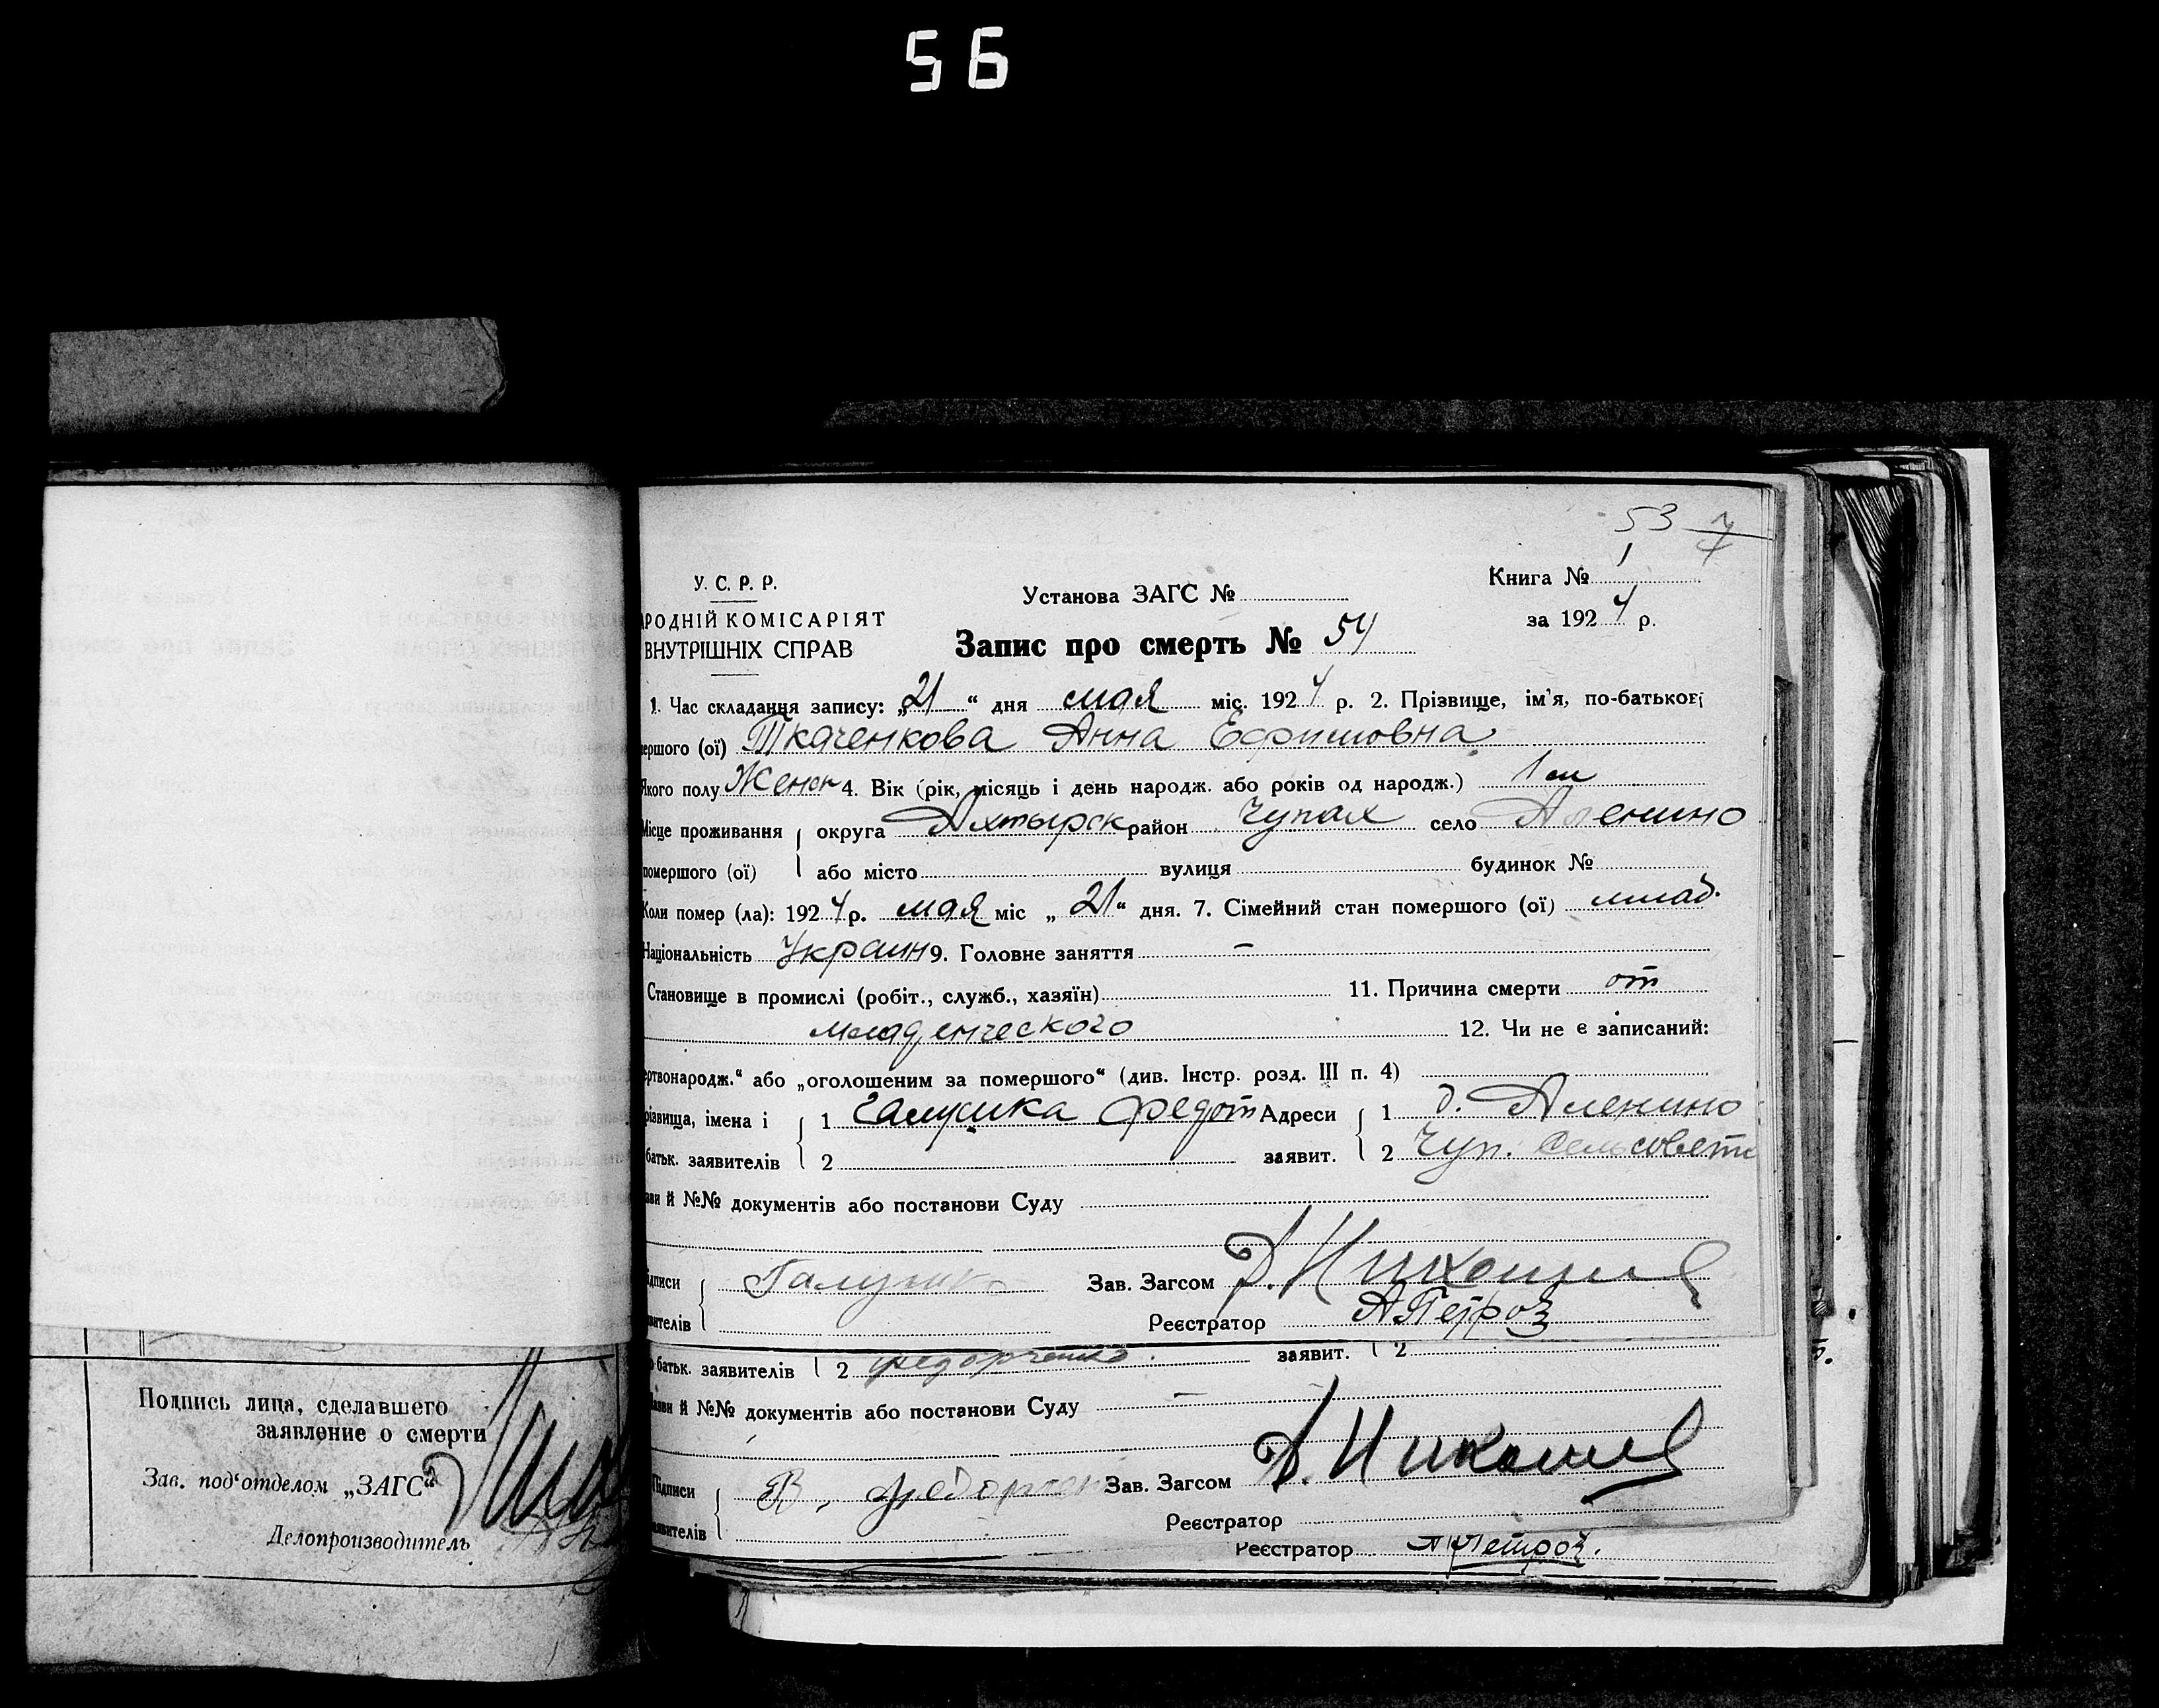 56
53 7/4
У. С. Р. Р.
Установа ЗАГС №
Книга № 1
РОДНІЙ КОМІСАРІЯТ
за 1924 р.
ВНУТРІШНІХ СПРАВ
Запис про смерть № 54
1. Час складання запису: „21“ дня мая міс. 1924 р. 2. Прізвище, ім'я, по-батькові
ершого (ої) Ткаченкова Анна Ефимовна
якого полу Женск 4. Вік (рік, місяць і день народж. або років од народж.) 1 м
Місце проживання округа Ахтырск район Чупах село Аленино
помершого (ої) або місто вулиця будинок №
Коли помер (ла): 1924 р. мая міс „21“ дня. 7. Сімейний стан помершого (ої) млад.
Національність Украин 9. Головне заняття —
Становище в промислі (робіт., служб., хазяїн) 11. Причина смерти от
младенческого 12. Чи не є записаний:
ертвонародж.“ або „оголошеним за помершого“ (див. Інстр. розд. III п. 4)
різвища, імена і 1 Галушка Федот Адреси 1 д. Аленино
батьк. заявителів 2 заявит. 2 Чуп. сельсовета
зви й №№ документів або постанови Суду
ідписи Галушка Зав. Загсом
вителів Реєстратор А Петров
батьк. заявителів 2 Федорченко. заявит. 2
Назви й №№ документів або постанови Суду —
Підписи В. Федорчен Зав. Загсом
явителів Реєстратор
Реєстратор А Петров.
Подпись лица, сделавшего
заявление о смерти
Зав. под'отделом „ЗАГС“
Делопроизводитель